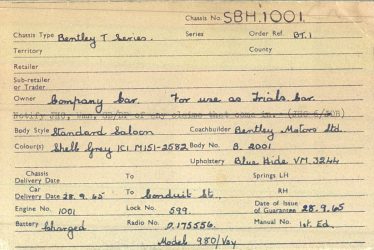 Chassis No. SBH.1001.
Chassis Type Bentley T Series. Series Order Ref. BT.1
Territory County
Retailer
Sub-retailer
or Trader
Owner Company Car. For use as Trials Car.
Body Style Standard Saloon Coachbuilder Bentley Motors Ltd.
Colour(s) Shell Grey ICI M151-2582 Body No. B. 2001
Upholstery Blue Hide VM.3244
Chassis
Delivery Date To Springs LH
Car
Delivery Date 28.9.65 To Conduit St. RH
Engine No. 1001 Lock No. 599. Date of Issue
of Guarantee 28.9.65
Battery Charged Radio No. 0.175556. Manual No. 1st. Ed.
Model 980/Vsy